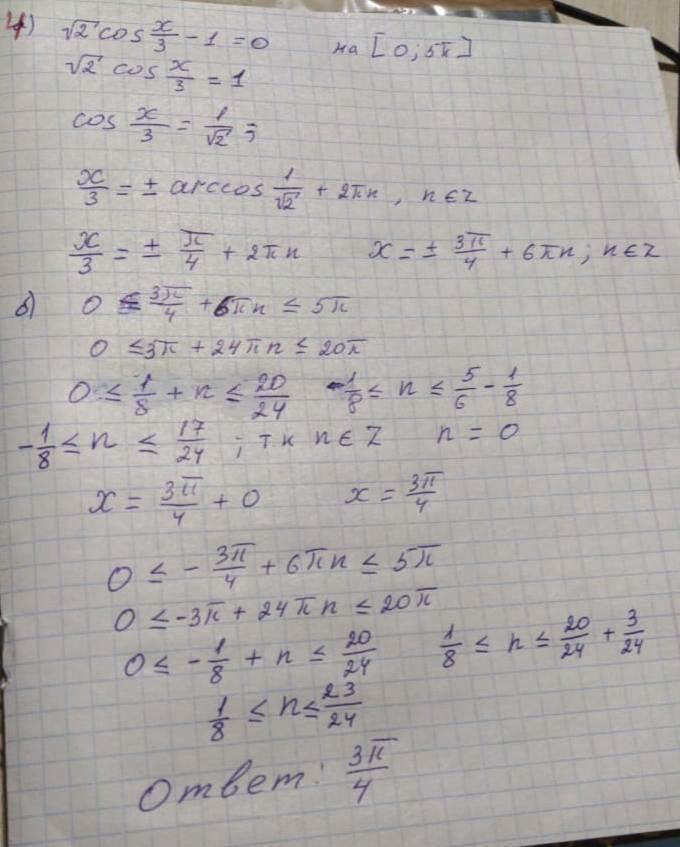 4) √2 cos x/3 - 1 = 0 на [0; 5π]
√2 cos x/3 = 1
cos x/3 = 1/√2 ;
x/3 = ± arccos 1/√2 + 2πn, n ∈ Z
x/3 = ± π/4 + 2πn x = ± 3π/4 + 6πn; n ∈ Z
б) 0 ≤ 3π/4 + 6πn ≤ 5π
0 ≤ 3π + 24πn ≤ 20π
0 ≤ 1/8 + n ≤ 20/24 -1/8 ≤ n ≤ 5/6 - 1/8
-1/8 ≤ n ≤ 17/24 ; тк n ∈ Z n = 0
x = 3π/4 + 0 x = 3π/4
0 ≤ - 3π/4 + 6πn ≤ 5π
0 ≤ -3π + 24πn ≤ 20π
0 ≤ - 1/8 + n ≤ 20/24 1/8 ≤ n ≤ 20/24 + 3/24
1/8 ≤ n ≤ 23/24
Ответ: 3π/4